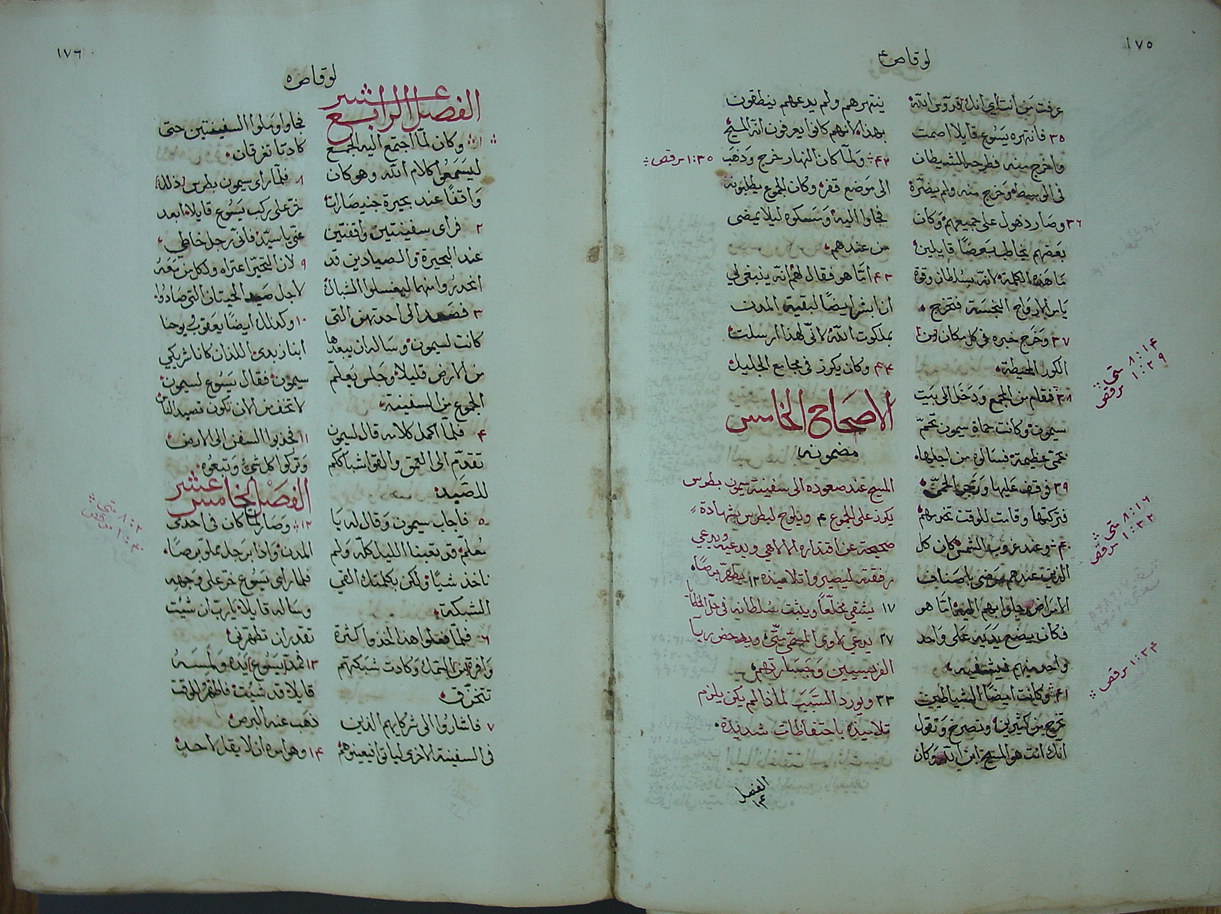 ١٧٥
لوقا ص ٤
عرفت من انت اي انك قدوس الله
٣٥ فانتهره يسوع قايلا اصمت
واخرج منه فطرحه الشيطان
في الوسط وخرج منه ولم يضره
٣٦ وصار ذهول على جميعهم وكان
بعضهم يخاطب بعضا قايلين
ما هذه الكلمة لانه بسلطان وقوة
يامر الارواح النجسة فتخرج
٣٧ وخرج خبره في كل مكان من
الكور المحيطة
٣٨ فقام من المجمع ودخل الى بيت
سيمون وكانت حماة سيمون بحمى
عظيمة فسالوه من اجلها
٣٩ فوقف عليها وزجر الحمى
فتركتها وقامت للوقت تخدمهم
٤٠ وعند غروب الشمس كان كل
الذين عندهم مرضى باصناف
الامراض يجلبوا بهم اليه اما هو
فكان يضع يديه على واحد
واحد منهم فيشفيه
٤١ وكانت ايضا الشياطين
تخرج من كثيرين وتصرخ وتقول
انك انت هو المسيح ابن الله وكان
متى ٨:١٤
مرقص ١:٢٩
متى ٨:١٦
مرقص ١:٣٢
مرقص ١:٣٤
ينتهرهم ولم يدعهم ينطقون
بهذا لانهم كانوا يعرفون انه المسيح
٤٢ ولما كان النهار خرج وذهب
الى موضع قفر وكان الجموع يطلبونه
فجاوا اليه وتمسكوه ليلا يمضي
من عندهم
٤٣ اما هو فقال لهم انه ينبغي لي
ان ابشر ايضا لبقية المدن
بملكوت الله لاني لهذا ارسلت
٤٤ وكان يكرز في مجامع الجليل
مرقص ١:٣٥
الاصحاح الخامس
مضمونه
المسيح عند صعوده الى سفينة سيمون بطرس
يكرز على الجموع ٤ ويلوح لبطرس بشهادة
صحيحة عن اقتداره الالاهي ويدعيه ويدعي
رفقته ليصيروا تلاميذه ١٢ يطهر برصا
١٧ يشفي مخلعا ويثبت سلطانه في حل الخطا
٢٧ يدعي لاوي المسمى متى ويدحض ريا
الفريسيين وجسارتهم
٣٣ ويورد السبب لماذا لم يكن يلزم
تلاميذه باحتفاظات شديدة
الفصل
١٤
١٧٦
لوقا ص ٥
الفصل الرابع عشر
١ وكان لما اجتمع اليه الجمع
ليسمعوا كلام الله وهو كان
واقفا عند بحيرة جنيصارات
٢ فراى سفينتين واقفتين
عند البحيرة والصيادين قد
انحدروا منهما ليغسلوا الشباك
٣ فصعد الى احدتهن التي
كانت لسيمون وساله ان يبعدها
من الارض قليلا وجلس يعلم
الجموع من السفينة
٤ فلما اكمل كلامه قال لسيمون
تقدم الى العمق والقوا شباككم
للصيد
٥ فاجاب سيمون وقال له يا
معلم قد تعبنا الليل كله ولم
ناخذ شيا ولكن بكلمتك القي
الشبكة
٦ فلما فعلوا هذا اخذوا كثرة
وافرة من السمك وكادت شبكتهم
تتخرق
٧ فاشاروا الى شركايهم الذين
في السفينة الاخرى لياتوا فيعينوهم
فجاوا وملوا السفينتين حتى
كادتا تغرقان
٨ فلما راى سيمون بطرس ذلك
خر على ركب يسوع قايلا ابعد
عني يا سيد فاني رجل خاطي
٩ لان التحير اعتراه ولكل من معه
لاجل صيد الحيتان التي صادوها
١٠ وكذلك ايضا يعقوب ويوحنا
ابنا زبدي اللذان كانا شريكي
سيمون فقال يسوع لسيمون
لا تخف من الان تكون تصيد الناس
١١ فجذبوا السفن الى الارض
وتركوا كل شي وتبعوه
الفصل الخامس عشر
١٢ وصار لما كان في احدى
المدن واذا برجل مملو برصا
فلما راى يسوع خر على وجهه
وساله قايلا يا رب ان شيت
تقدر ان تطهرني
١٣ فمد يسوع يده ولمسه
قايلا قد شيت فاطهر وللوقت
ذهب عنه البرص
١٤ وهو امره ان لا يقل لاحد
متى ٨:٢
مرقص ١:٤٠